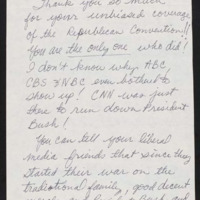 Thank you so much
for your unbiased coverage
of the Republican Convention!!
You are the only one who did!
I don't know why ABC,
CBS & NBC even bothered to
show up! CNN was just
there to run down President
Bush!
You can tell your liberal
media friends that since they
started their war on the
tradiotional family, good decent